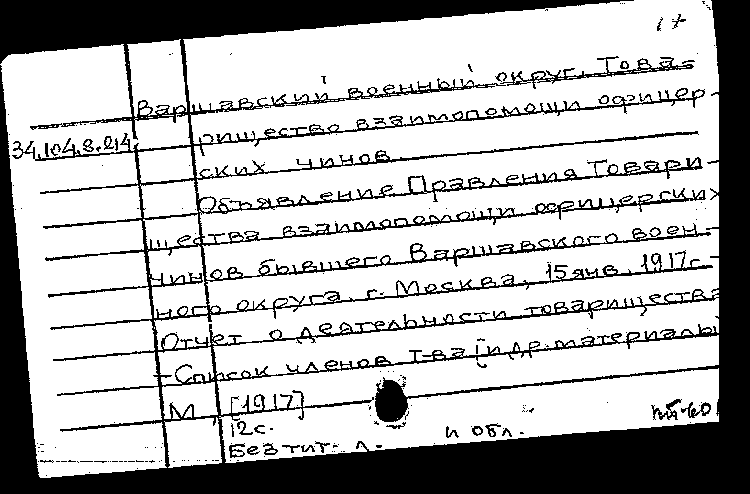 Варшавский военный округ. Това-
рищество взаимопомощи офицер-
34.104.8.214.
ских чинов
Объявление Правления Товари-
щества взаимопомощи офицерских
чинов бывшего Варшавского воен-
ного округа. г. Москва, 15 янв. 1917 г.-
Отчет о деятельности товарищества
-Список членов т-ва [и др. материалы
М., [1917]
12 с.
Без тит. л. и обл.